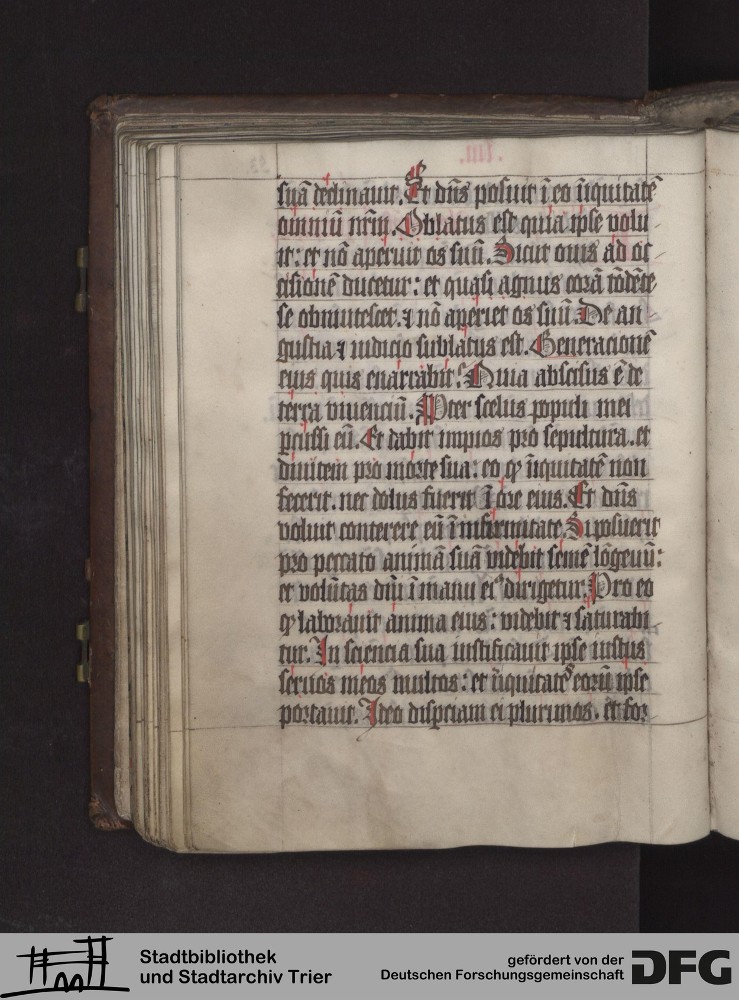 suā declinauit. Et dn̄s posuit ī eo īiquitatē
omniū nr̄m. Oblatus est quia ipse volu
it: et nō aperuit os suū. Sicut ouis ad oc
cisionē ducetur: et quasi agnus corā tōdēte
se obmutescet. ⁊ nō aperiet os suū. De an
gustia ⁊ iudicio sublatus est. Generacionē
eius quis enarrabit? Quia abscisus ē de
terra viuenciū. Propter scelus populi mei
ꝑcussi eū. Et dabit impios pro sepultura. et
diuitem pro morte sua: eo ꝙ īiquitatē non
fecerit. nec dolus fuerit ī ore eius. Et dn̄s
voluit conterere eū ī infirmitate. Si posuerit
pro peccato animā suā videbit semē lōgeuū:
et volūtas dn̄i ī manu eiꝰ dirigetur. Pro eo
ꝙ laborauit anima eius: videbit ⁊ saturabi
tur. In sciencia sua iustificauit ipse iustus
seruos meos multos: et īiquitates eorū ipse
portauit. Ideo disperciam ei plurimos. et for
Stadtbibliothek
und Stadtarchiv Trier
gefördert von der
Deutschen Forschungsgemeinschaft
DFG